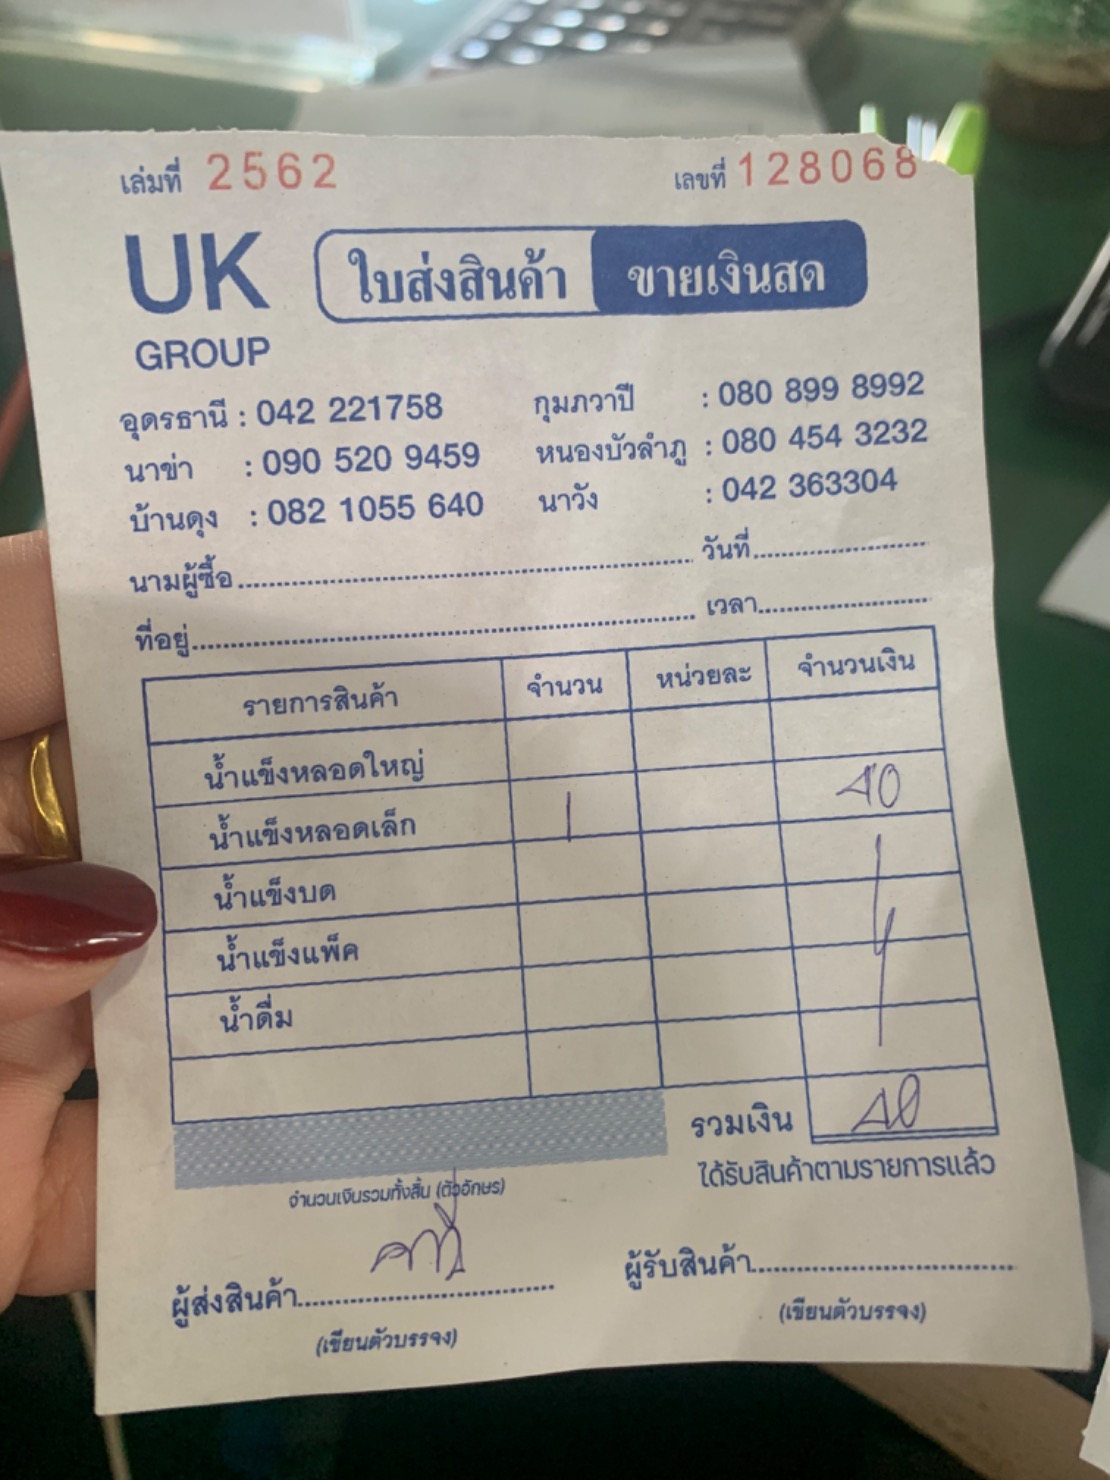 เล่มที่ 2562 เลขที่ 128068
UK ใบส่งสินค้า ขายเงินสด
GROUP
อุดรธานี : 042 221758 กุมภวาปี : 080 899 8992
นาข่า : 090 520 9459 หนองบัวลำภู : 080 454 3232
บ้านดุง : 082 1055 640 นาวัง : 042 363304
นามผู้ซื้อ วันที่
ที่อยู่ เวลา
รายการสินค้า จำนวน หน่วยละ จำนวนเงิน
น้ำแข็งหลอดใหญ่
น้ำแข็งหลอดเล็ก 1 40
น้ำแข็งบด
น้ำแข็งแพ็ค
น้ำดื่ม
รวมเงิน 40
ได้รับสินค้าตามรายการแล้ว
จำนวนเงินรวมทั้งสิ้น (ตัวอักษร)
ผู้ส่งสินค้า ผู้รับสินค้า
(เขียนตัวบรรจง) (เขียนตัวบรรจง)